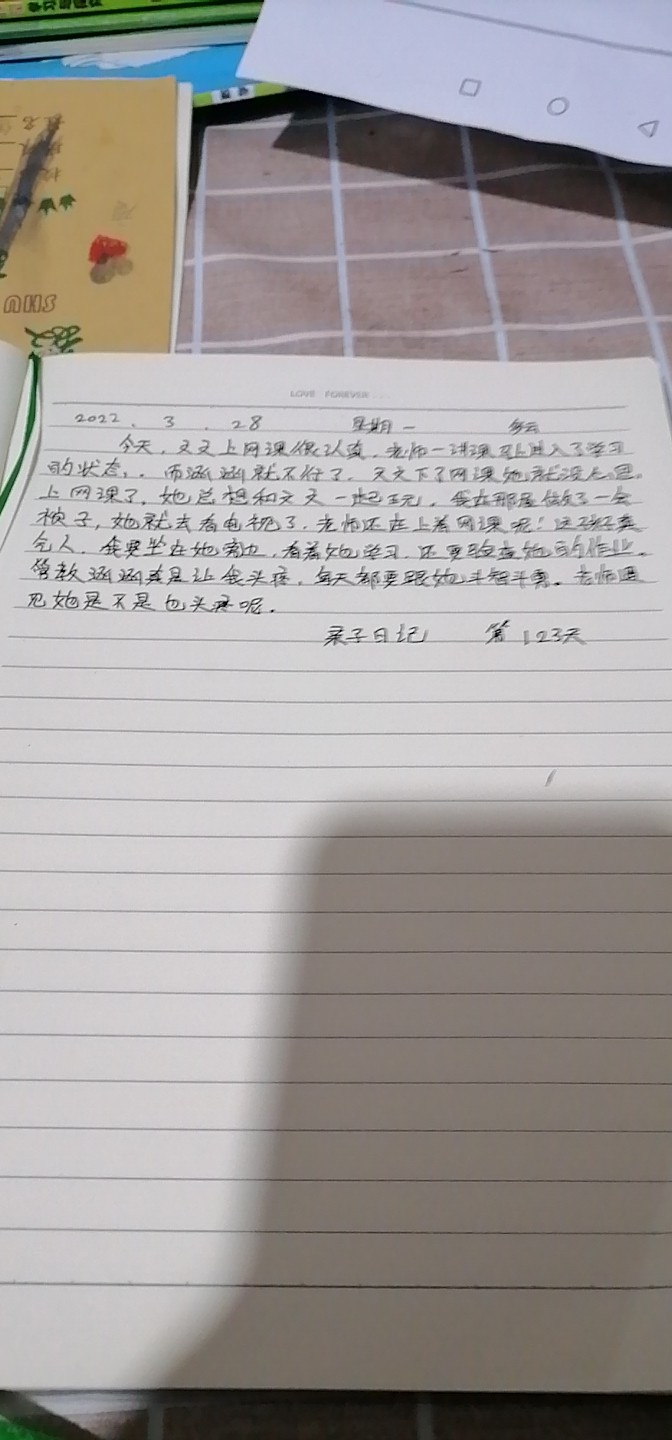 LOVE FOREVER
2022. 3. 28 星期一 多云
今天,文文上网课很认真,老师一讲课马上进入了学习
的状态,. 而涵涵就不行了,文文下了网课她就没心思
上网课了,她总想和文文一起玩。我在那屋做了一会
桢子,她就去看电视了,老师还在上着网课呢!这孩子真
气人,我要坐在她旁边,看着她学习,还要检查她的作业。
管教涵涵真是让我头疼,每天都要跟她斗智斗勇。老师遇
见她是不是也头疼呢。
亲子日记 第123天
SHU